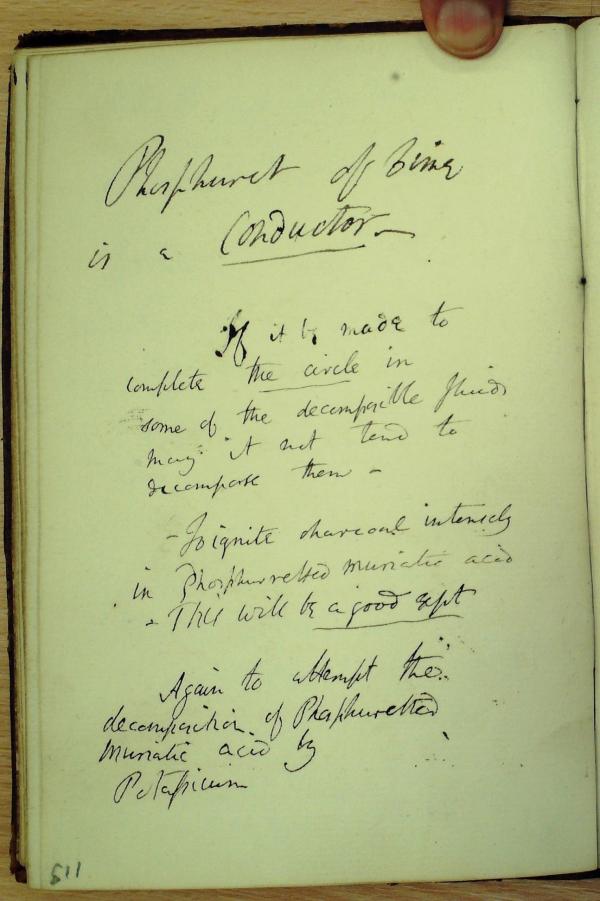 Phosphuret of Lime
is a Conductor -
If it be made to
complete the circle in
some of the decomposible fluids
may it not tend to
decompose them -
- To ignite charcoal intensely
in Phosphuretted muriatic acid
- This will be a good expt
Again to attempt the
decomposition of Phosphuretted
muriatic acid by
Potassium
511